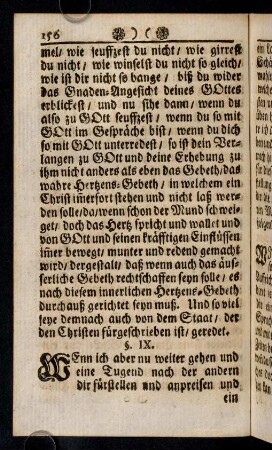 156
mel/ wie seuffzest du nicht/ wie girrest
du nicht/ wie winselst du nicht so gleich/
wie ist dir nicht so bange/ biß du wider
das Gnaden-Angesicht deines GOttes
erblickest/ und nu sihe dann/ wenn du
also zu GOtt seuffzest/ wenn du so mit
GOtt im Gespräche bist/ wenn du dich
so mit GOtt unterredest/ so ist dein Ver-
langen zu GOtt und deine Erhebung zu
ihm nicht anders als eben das Gebeth/ das
wahre Hertzens-Gebeth/ in welchem ein
Christ im̃erfort stehen und nicht laß wer-
den solle/ da/ wenn schon der Mund schwei-
get/ doch das Hertz spricht und wallet und
von GOtt und seinen kräfftigen Einflüssen
im̃er bewegt/ munter und redend gemacht
wird/ dergestalt/ daß wenn auch das äus-
serliche Gebeth rechtschaffen seyn solle/ es
nach diesem innerlichen Hertzens-Gebeth
durchauß gerichtet seyn muß. Und so viel
seye demnach auch von dem Staat/ der
den Christen fürgeschrieben ist/ geredet.
§. IX.
WEnn ich aber nu weiter gehen und
eine Tugend nach der andern
dir fürstellen und anpreisen und
ein